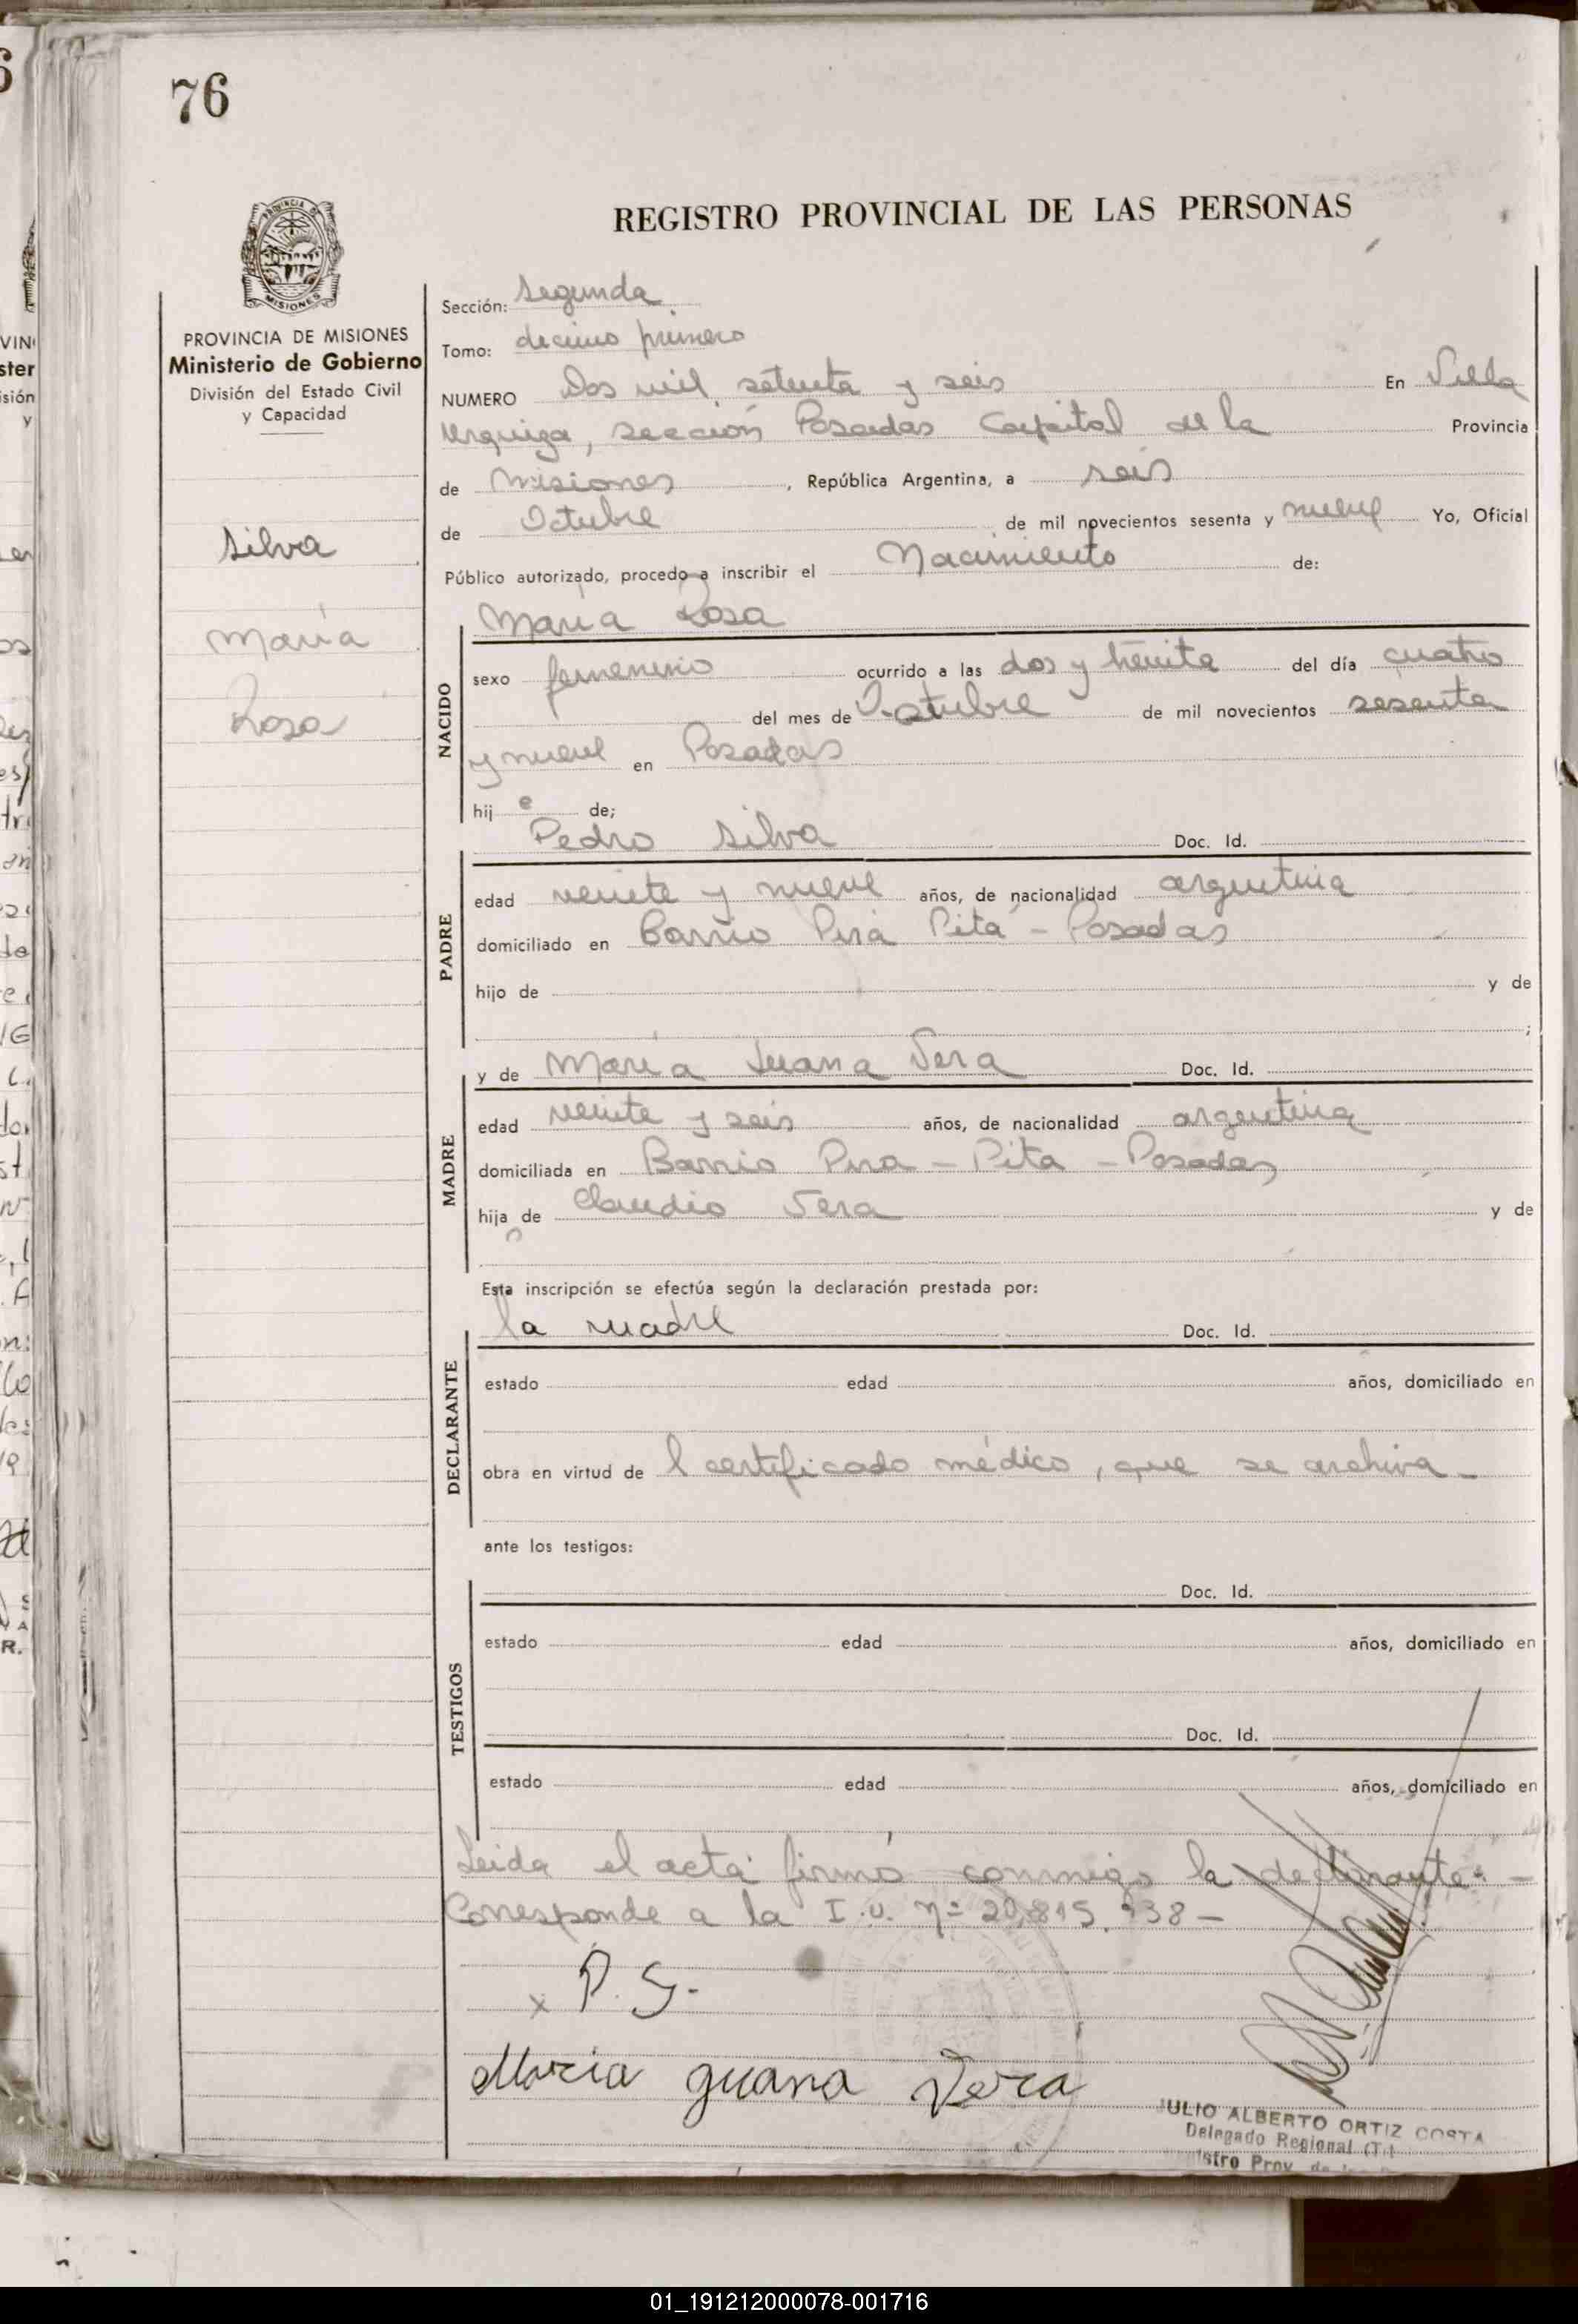 76
REGISTRO PROVINCIAL DE LAS PERSONAS
PROVINCIA DE MISIONES
Ministerio de Gobierno
División del Estado Civil
y Capacidad
Silva
María
Rosa
Sección: Segunda
Tomo: decimo primero
NUMERO Dos mil setenta y seis En Villa
Urquiza, sección Posadas Capital de la Provincia
de Misiones, República Argentina, a seis
de Octubre de mil novecientos sesenta y nueve Yo, Oficial
Público autorizado, procedo a inscribir el Nacimiento de:
María Rosa
NACIDO
sexo femenino ocurrido a las dos y treinta del día cuatro
del mes de Octubre de mil novecientos sesenta
y nueve en Posadas
hij e de;
Pedro Silva Doc. Id.
PADRE
edad veinte y nueve años, de nacionalidad argentina
domiciliado en Barrio Pirá Pitá - Posadas
hijo de y de
;
y de María Juana Vera Doc. Id.
MADRE
edad veinte y seis años, de nacionalidad argentina
domiciliada en Barrio Pira - Pita - Posadas
hija de Claudio Vera y de
Esta inscripción se efectúa según la declaración prestada por:
la madre Doc. Id.
DECLARANTE
estado edad años, domiciliado en
obra en virtud de l certificado médico, que se archiva -
ante los testigos:
Doc. Id.
TESTIGOS
estado edad años, domiciliado en
Doc. Id.
estado edad años, domiciliado en
Leida el acta firmó conmigo la declarante. -
Corresponde a la I.U. Nº 20.815.938 -
x P. S.
Maria Juana Vera
JULIO ALBERTO ORTIZ COSTA
Delegado Regional (T.)
istro Prov. de
01_191212000078-001716